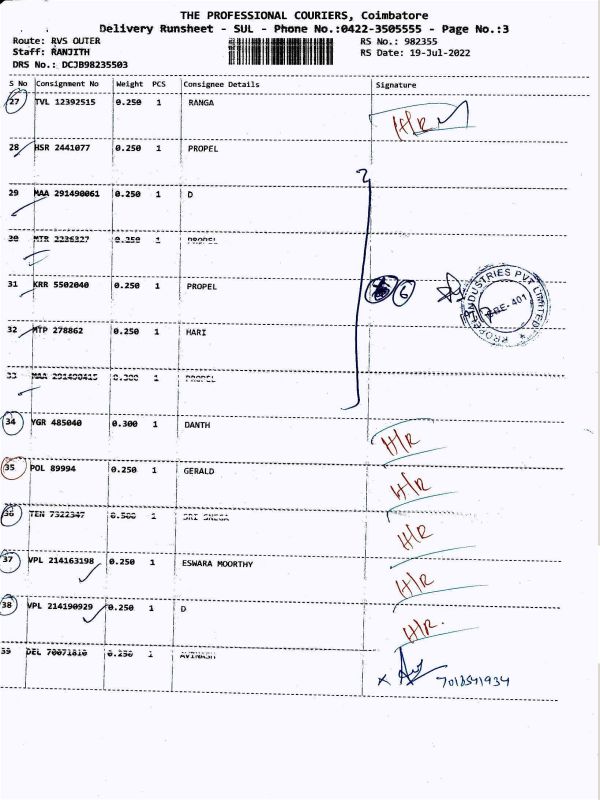 THE PROFESSIONAL COURIERS, Coimbatore
Delivery Runsheet - SUL - Phone No.:0422-3505555 - Page No.:3
Route: RVS OUTER RS No.: 982355
Staff: RANJITH RS Date: 19-Jul-2022
DRS No.: DCJB98235503
S No Consignment No Weight PCS Consignee Details Signature
27 TVL 12392515 0.250 1 RANGA H/R
28 HSR 2441077 0.250 1 PROPEL
29 MAA 291490061 0.250 1 D
30 MTR 2236327 0.250 1 PROPEL
31 KRR 5502040 0.250 1 PROPEL 6
PROPEL INDUSTRIES PVT LIMITED
CBE-401
32 MTP 278862 0.250 1 HARI
33 MAA 291490415 0.300 1 PROPEL
34 YGR 485040 0.300 1 DANTH H/R
35 POL 89994 0.250 1 GERALD H/R
36 TEN 7322347 0.500 1 SRI SNEGA H/R
37 VPL 214163198 0.250 1 ESWARA MOORTHY H/R
38 VPL 214190929 0.250 1 D H/R.
39 DEL 70071810 0.250 1 AVINASH x 7018541934